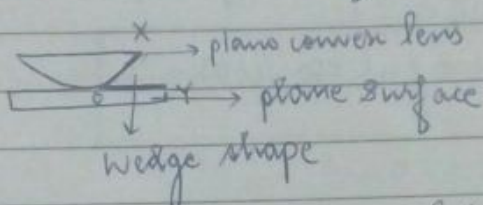 X
plano convex lens
O Y plane surface
wedge shape